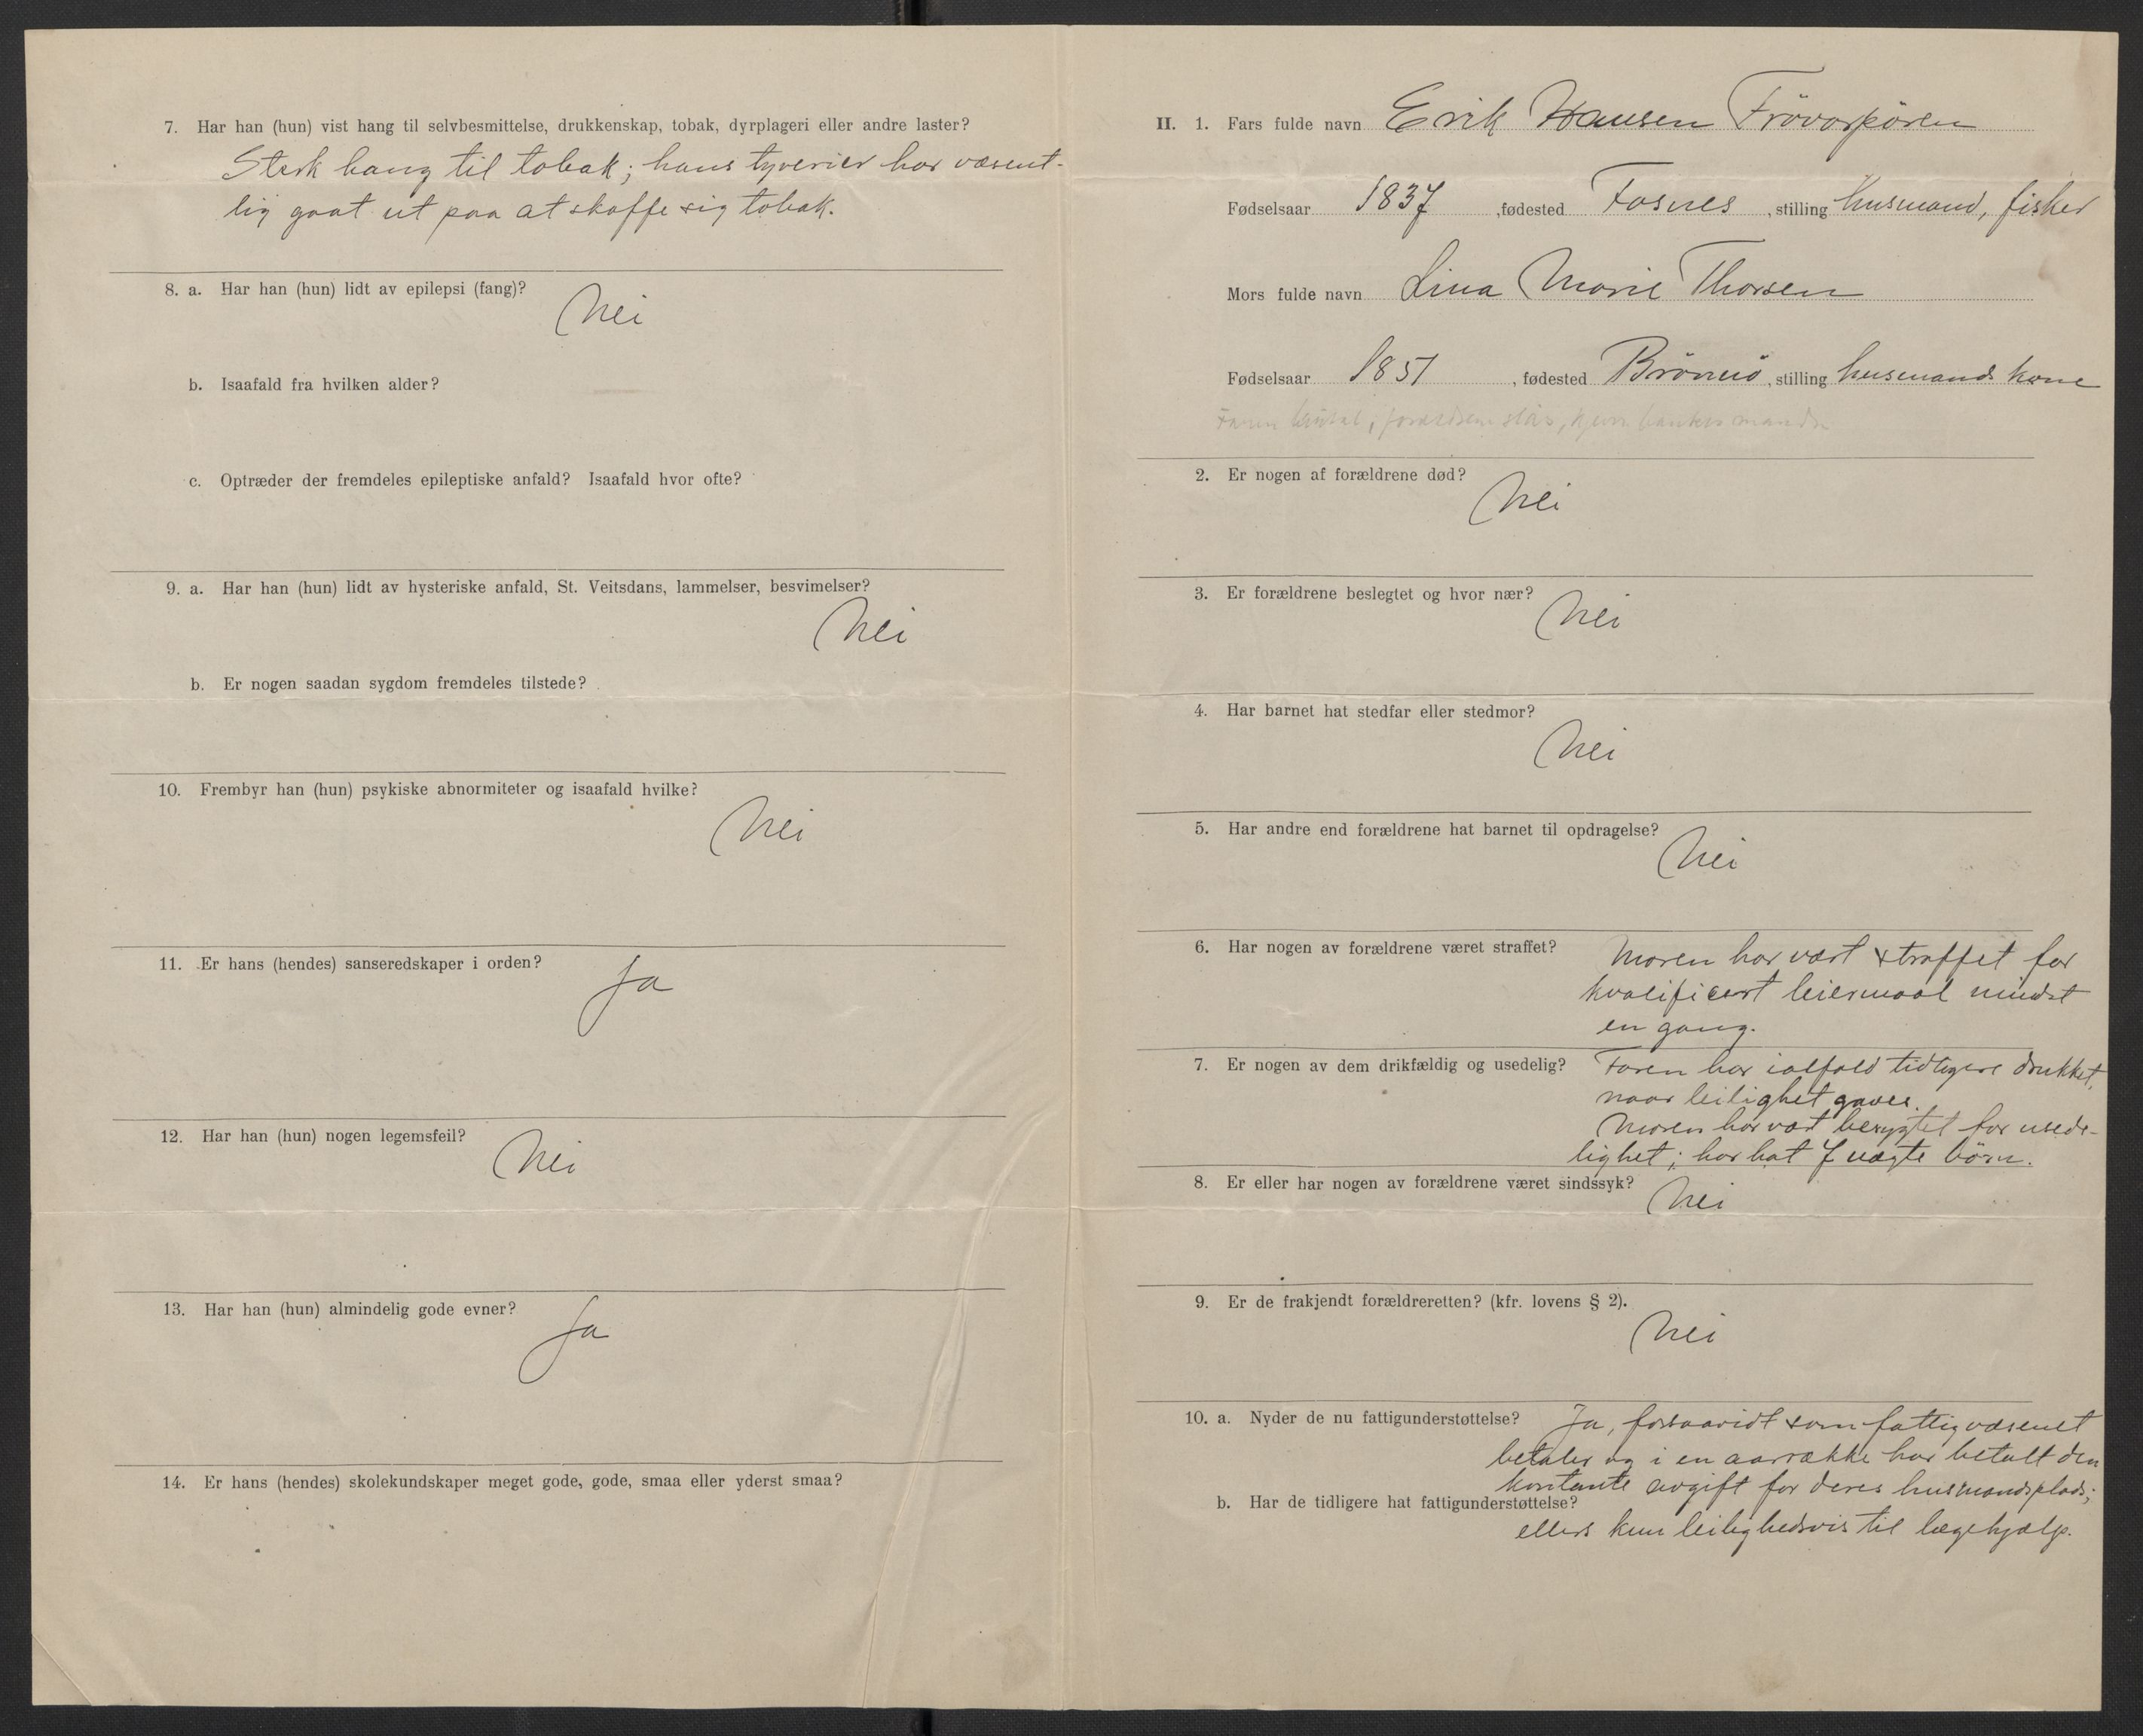 7. Har han (hun) vist hang til selvbesmittelse, drukkenskap, tobak, dyrplageri eller andre laster?
Sterk hang til tobak; hans tyverier har væsent-
lig gaat ut paa at skaffe sig tobak.
8. a. Har han (hun) lidt av epilepsi (fang)?
Nei
b. Isaafald fra hvilken alder?
c. Optræder der fremdeles epileptiske anfald? Isaafald hvor ofte?
9. a. Har han (hun) lidt av hysteriske anfald, St. Veitsdans, lammelser, besvimelser?
Nei
b. Er nogen saadan sygdom fremdeles tilstede?
10. Frembyr han (hun) psykiske abnormiteter og isaafald hvilke?
Nei
11. Er hans (hendes) sanseredskaper i orden?
Ja
12. Har han (hun) nogen legemsfeil?
Nei
13. Har han (hun) almindelig gode evner?
Ja
14. Er hans (hendes) skolekundskaper meget gode, gode, smaa eller yderst smaa?
II. 1. Fars fulde navn Erik Hansen
Fødselsaar 1837, fødested Fosnes, stilling husmand, fisker
Mors fulde navn Lina Marie Thorsen
Fødselsaar 1851, fødested Brönnö, stilling husmands kone
2. Er nogen af forældrene død?
Nei
3. Er forældrene beslegtet og hvor nær?
Nei
4. Har barnet hat stedfar eller stedmor?
Nei
5. Har andre end forældrene hat barnet til opdragelse?
Nei
6. Har nogen av forældrene været straffet? Moren har vært straffet for
kvalificert leiermaal mindst
en gang.
7. Er nogen av dem drikfældig og usedelig? Faren har ialfald tidligere drukket,
naar leilighet gaves.
Moren har vært berygtet for usede-
lighet; har hat 7 uægte börn.
8. Er eller har nogen av forældrene været sindssyk?
Nei
9. Er de frakjendt forældreretten? (kfr. lovens § 2).
Nei
10. a. Nyder de nu fattigunderstøttelse? Ja, forsaavidt som fattigvæsenet
betaler og i en aarrække har betalt den
kontante avgift for deres husmandsplads;
b. Har de tidligere hat fattigunderstøttelse?
ellers kun leilighedsvis til lægehjælp.